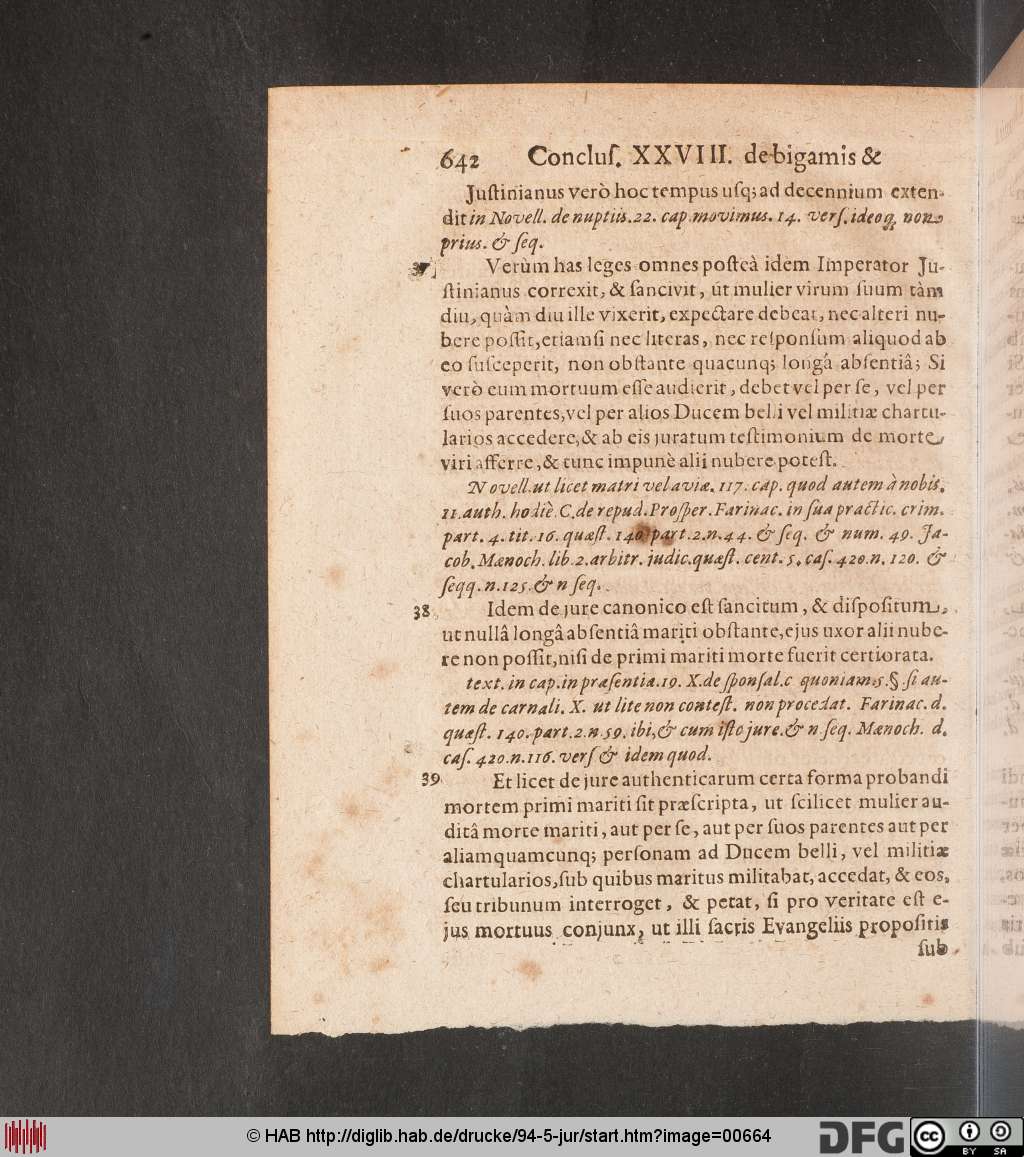 642 Concluſ. XXVIII. de bigamis &
Juſtinianus verò hoc tempus uſq; ad decennium exten-
dit in Novell. de nuptiis. 22. cap. movimus. 14. verſ. ideoq, non
prius. & ſeq.
37 Verùm has leges omnes poſteà idem Imperator Ju-
ſtinianus correxit, & ſancivit, ut mulier virum ſuum tàm
diu, quàm diu ille vixerit, expectare debeat, nec alteri nu-
bere poſſit, etiamſi nec literas, nec reſponſum aliquod ab
eo ſuſceperit, non obſtante quacunq; longâ abſentiâ; Si
verò eum mortuum eſſe audierit, debet vel per ſe, vel per
ſuos parentes, vel per alios Ducem belli vel militiæ chartu-
larios accedere, & ab eis juratum teſtimonium de morte
viri afferre, & tunc impunè alii nubere poteſt.
Novell. ut licet matri vel aviæ. 117. cap. quod autem à nobis.
11. auth. hodiè. C. de repud. Proſper. Farinac. in ſua practic. crim.
part. 4. tit. 16. quæſt. 140. part. 2. n. 44. & ſeq. & num. 49. Ja-
cob. Mænoch. lib. 2. arbitr. judic. quæſt. cent. 5. caſ. 420. n. 120. &
ſeqq. n. 125. & n ſeq.
38 Idem de jure canonico eſt ſancitum, & diſpoſitum,
ut nullâ longâ abſentiâ mariti obſtante, ejus uxor alii nube-
re non poſſit, niſi de primi mariti morte fuerit certiorata.
text. in cap. in præſentia. 19. X. de ſponſal. c quoniam. 5. §. ſi au-
tem de carnali. X. ut lite non conteſt. non procedat. Farinac. d.
quæſt. 140. part. 2. n. 59. ibi, & cum iſto jure. & n ſeq. Mænoch. d.
caſ. 420. n. 116. verſ & idem quod.
39 Et licet de jure authenticarum certa forma probandi
mortem primi mariti ſit præſcripta, ut ſcilicet mulier au-
ditâ morte mariti, aut per ſe, aut per ſuos parentes aut per
aliam quamcunq; perſonam ad Ducem belli, vel militiæ
chartularios, ſub quibus maritus militabat, accedat, & eos,
ſeu tribunum interroget, & petat, ſi pro veritate eſt e-
jus mortuus conjunx, ut illi ſacris Evangeliis propoſitis
ſub
© HAB http://diglib.hab.de/drucke/94-5-jur/start.htm?image=00664
DFG
cc BY SA